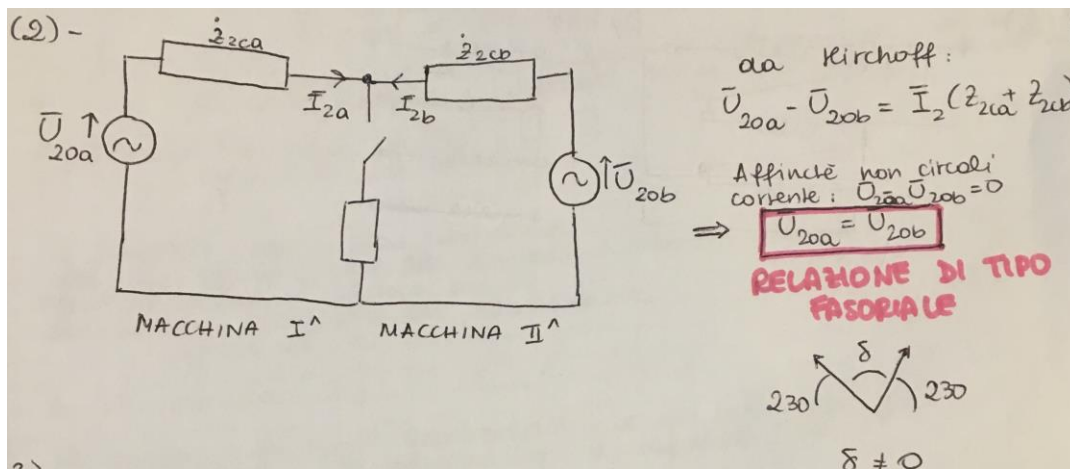 (2)-
Ż2ca
Ż2cb
Ī2a
Ī2b
Ū20a
Ū20b
MACCHINA I^
MACCHINA II^
da Kirchoff:
Ū20a - Ū20b = Ī2 (Z2ca + Z2cb)
Affinchè non circoli
corrente: Ū20a - Ū20b = 0
⇒ Ū20a = Ū20b
RELAZIONE DI TIPO
FASORIALE
δ
230
230
δ ≠ 0